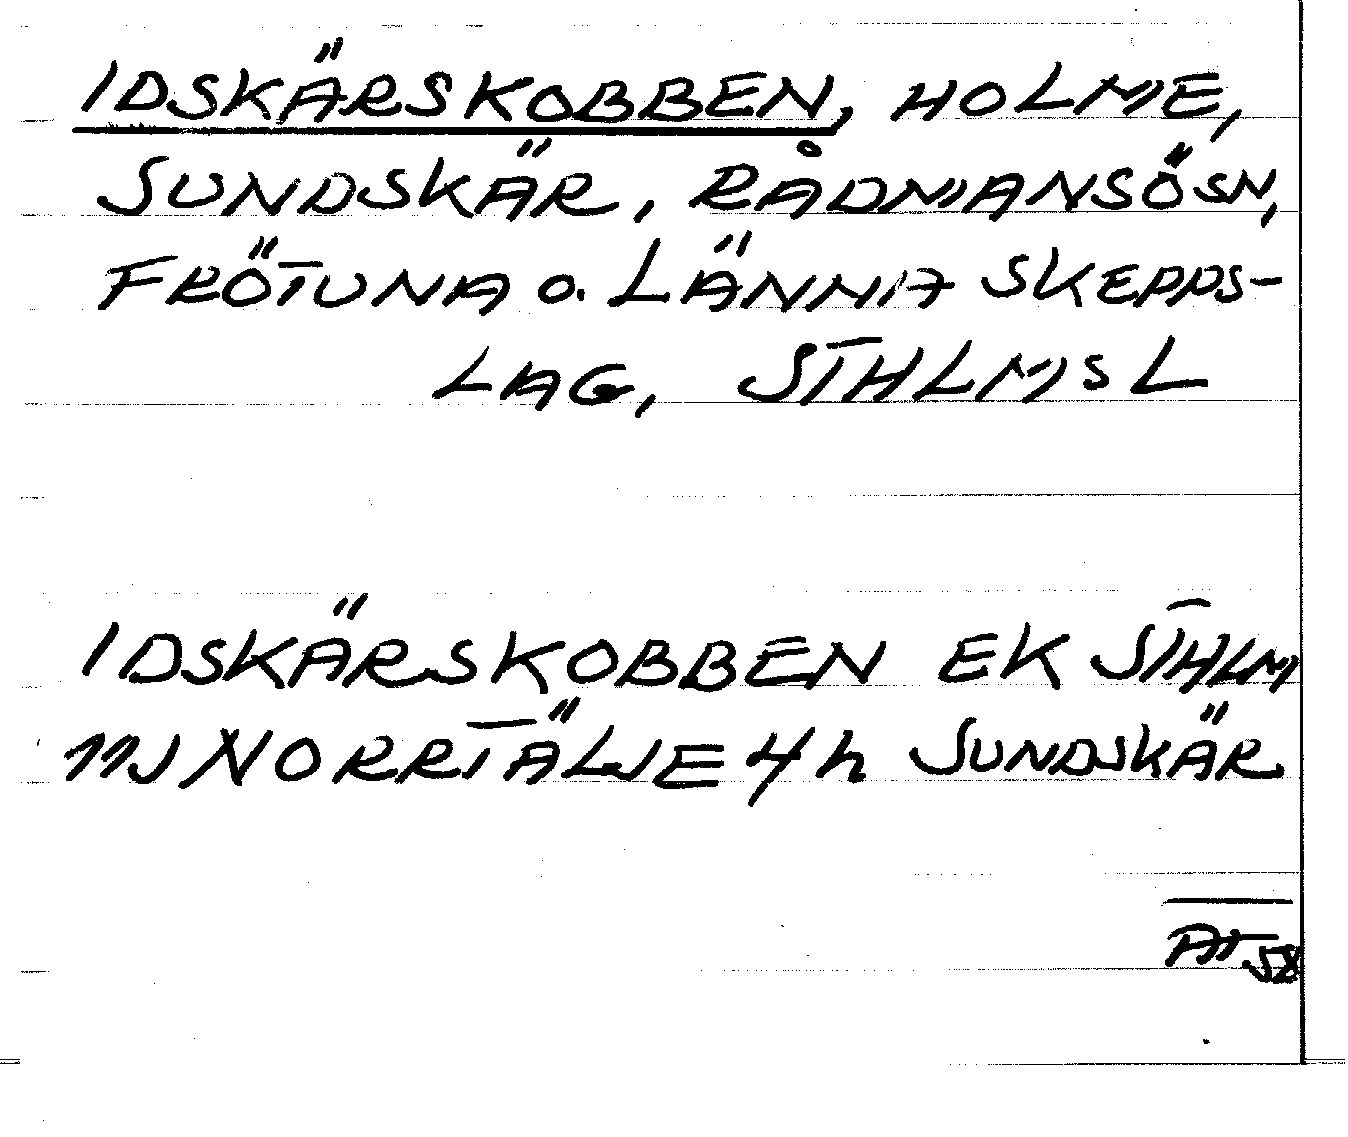 IDSKÄRSKOBBEN, HOLME,
SUNDSKÄR, RÅDMANSÖ SN,
FRÖTUNA o. LÄNNA SKEPPS-
LAG, STHLMS L
IDSKÄRSKOBBEN EK STHLM
11J NORRTÄLJE 4h SUNDSKÄR
AT 58